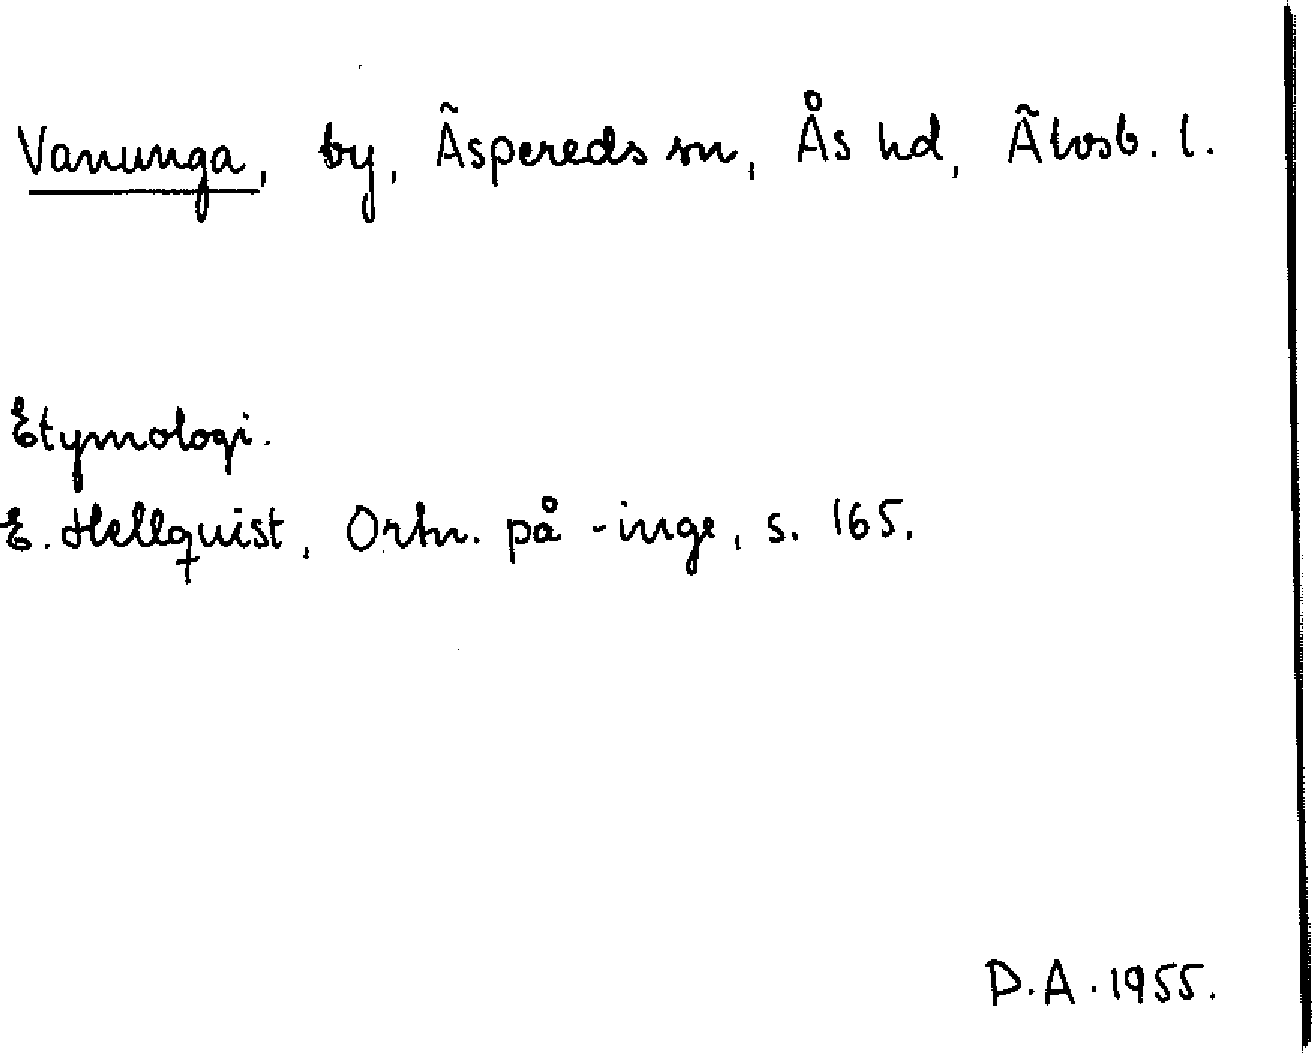 Vanunga, by, Äspereds sn, Ås hd, Älvsb. l.
Etymologi.
E. Hellquist, Ortn. på -inge, s. 165.
D.A. 1955.